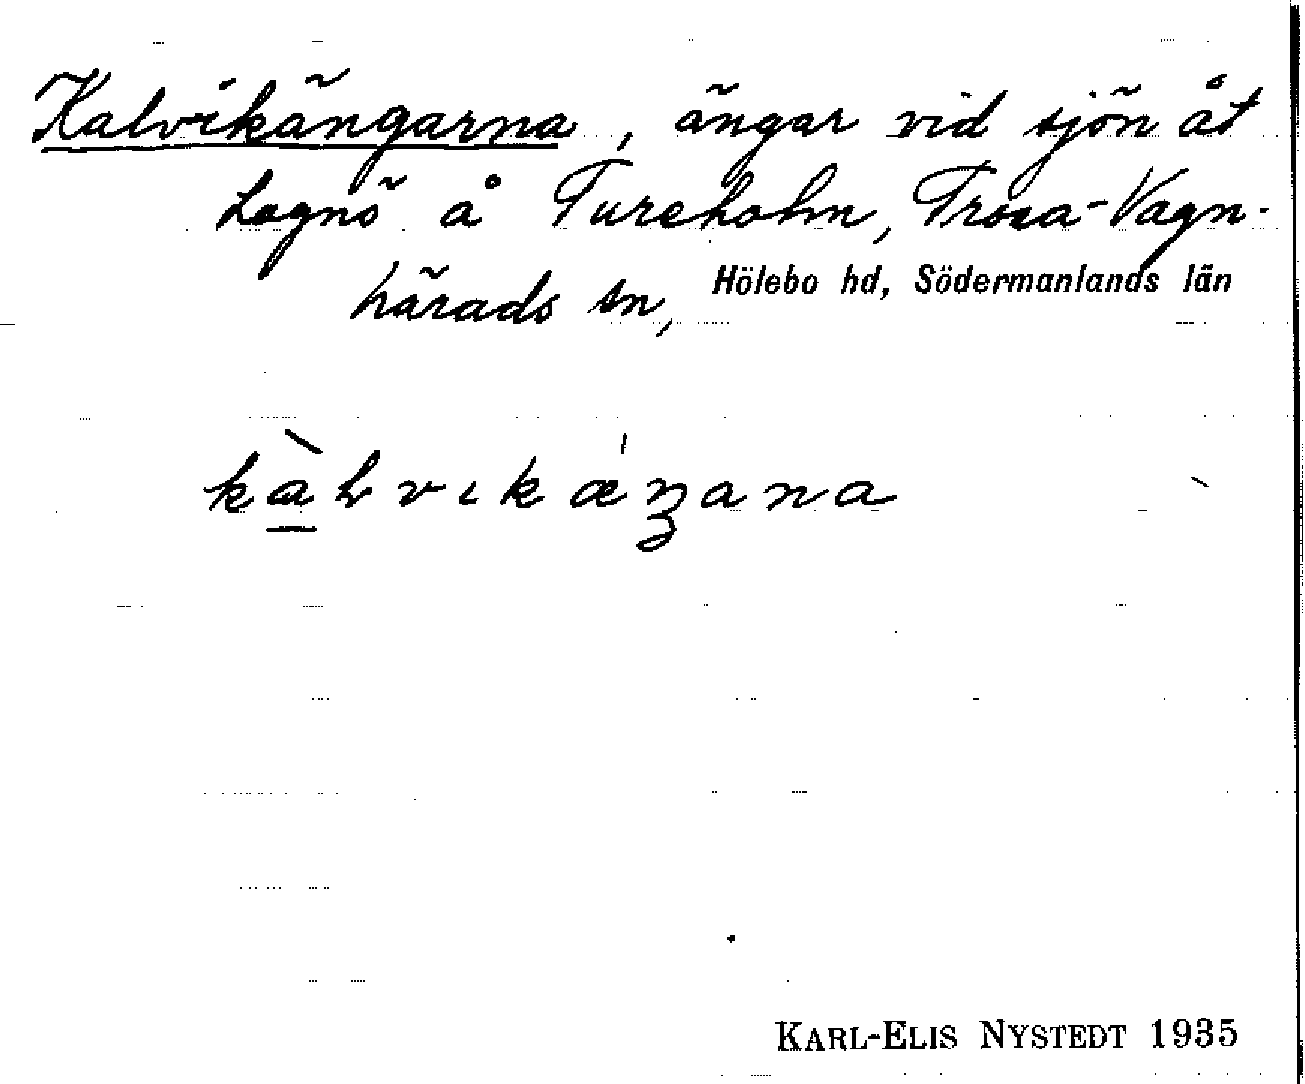 Kalvikängarna, ängar vid sjön åt
Lagnö å Tureholm, Trosa-Vagn-
härads sn, Hölebo hd, Södermanlands län
KARL-ELIS NYSTEDT 1935